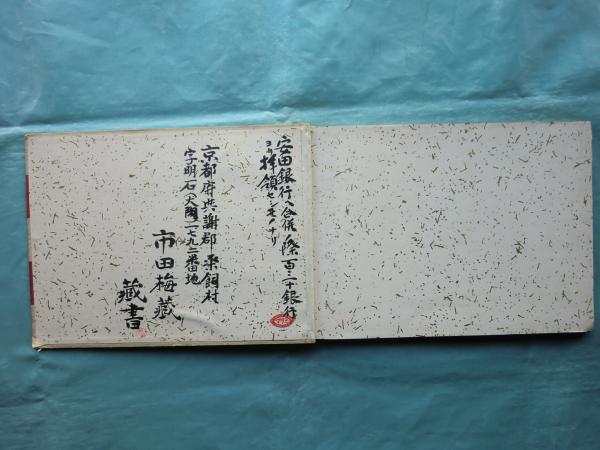 安田銀行ヘ合併ノ際百三十銀行
ヨリ拝領センモノナリ
京都府与謝郡桑飼村
字明石 二七九二番地
市田梅蔵
蔵書